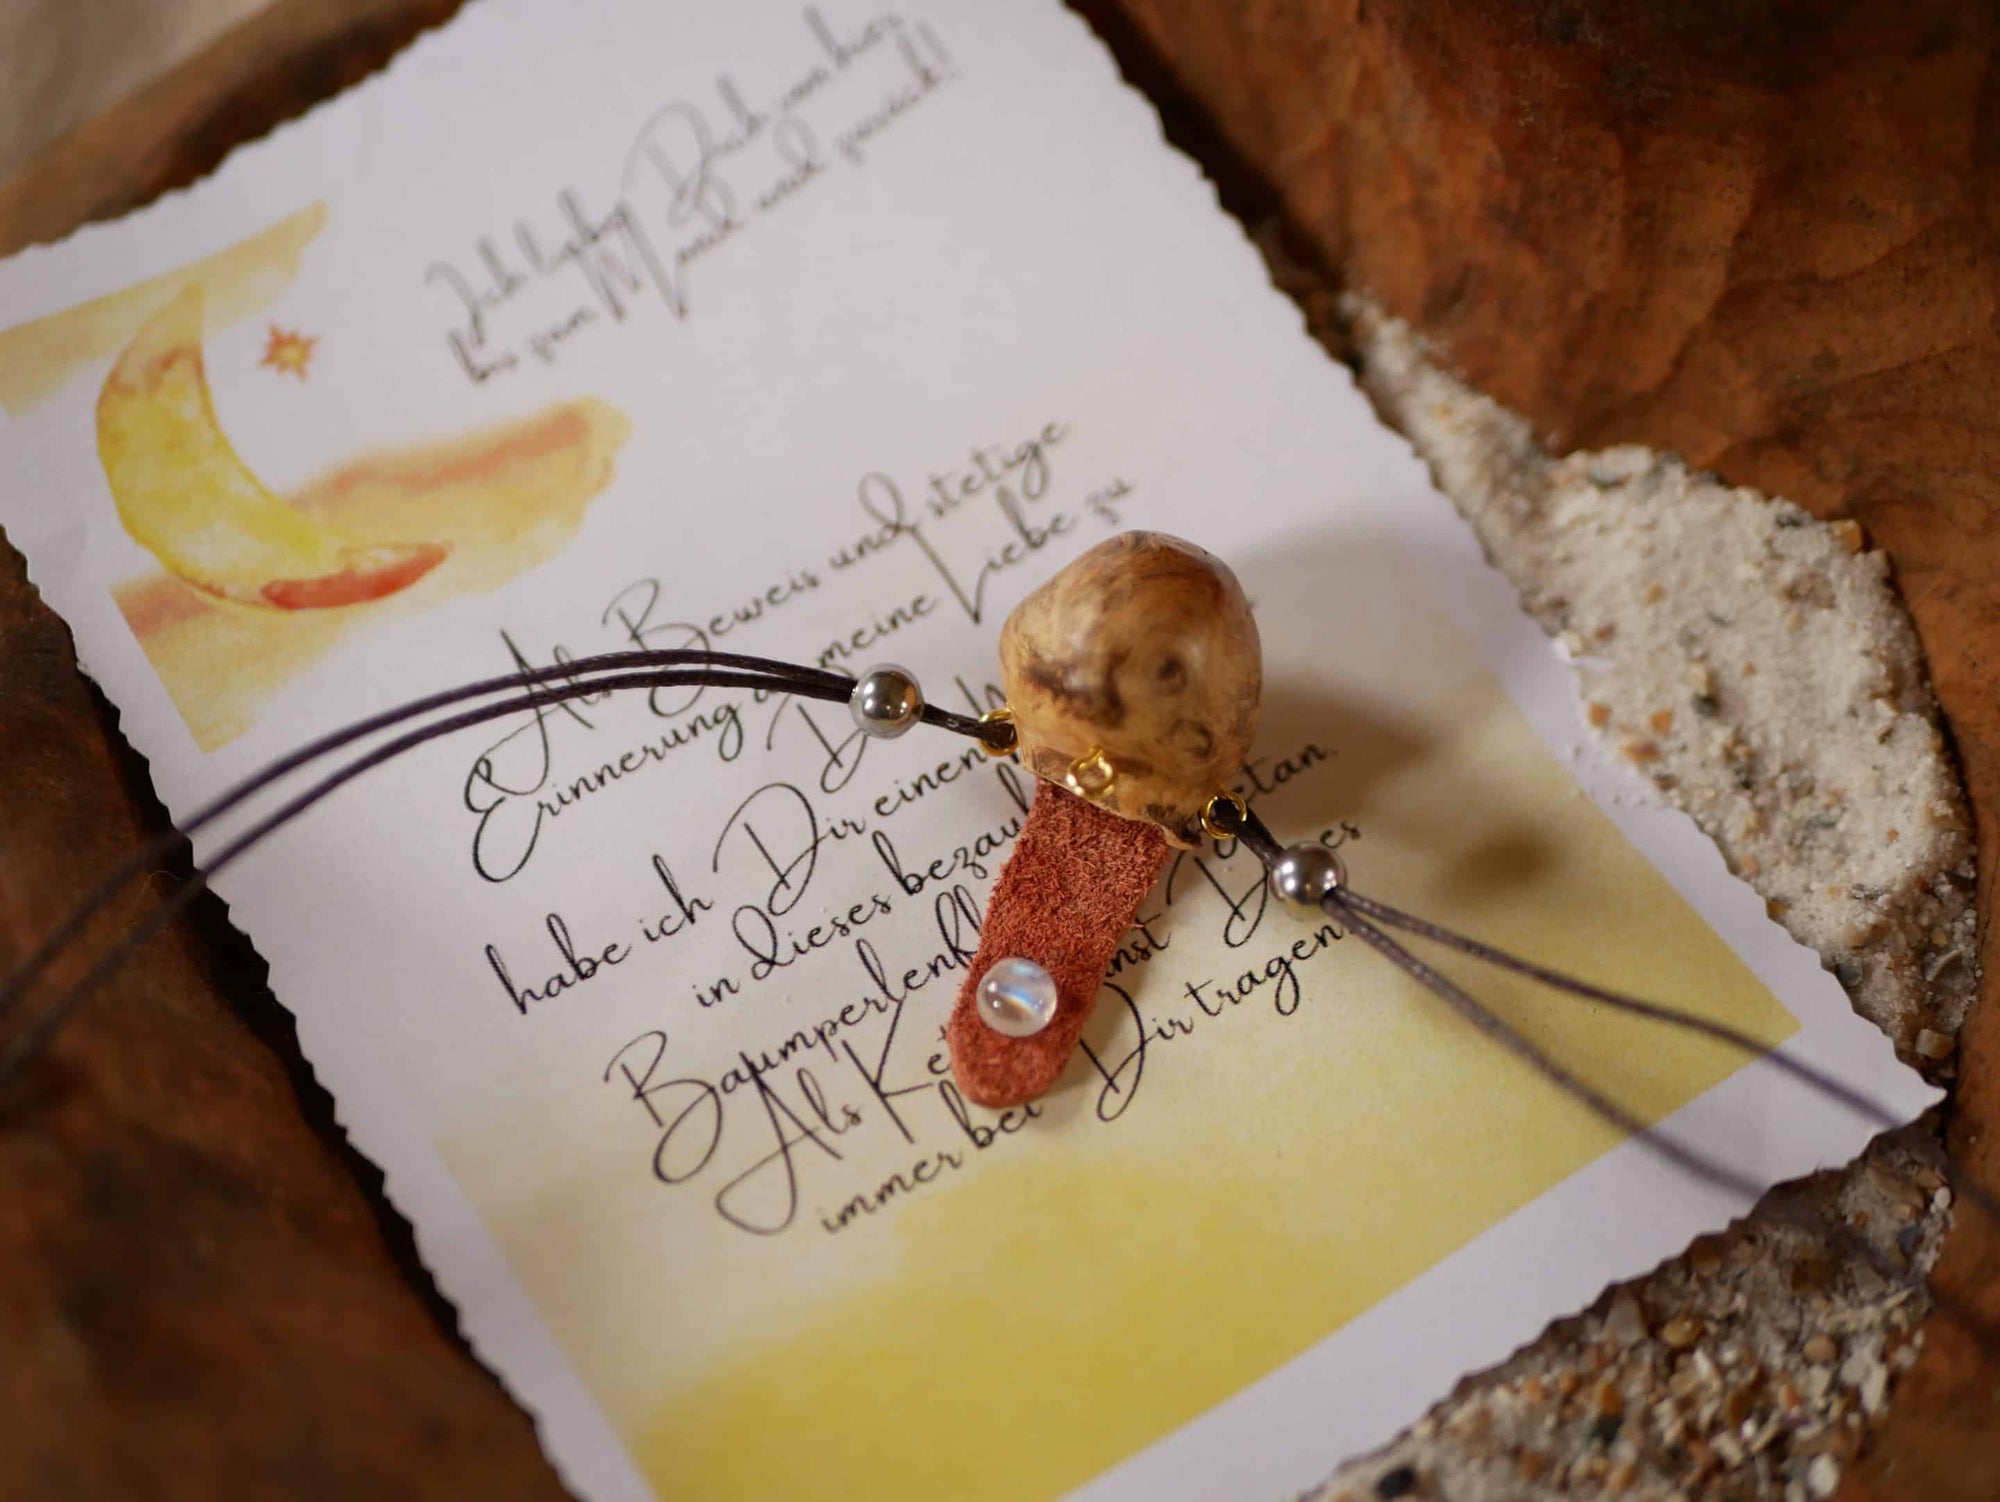 Ich liebe Dich von hier
bis zum Mond und zurück!
Als Beweis und stetige
Erinnerung an meine Liebe zu
D
habe ich Dir einen
in dieses bezau
Baumperlenkl etan.
Als Ket nst Dieses
immer bei Dir tragen.